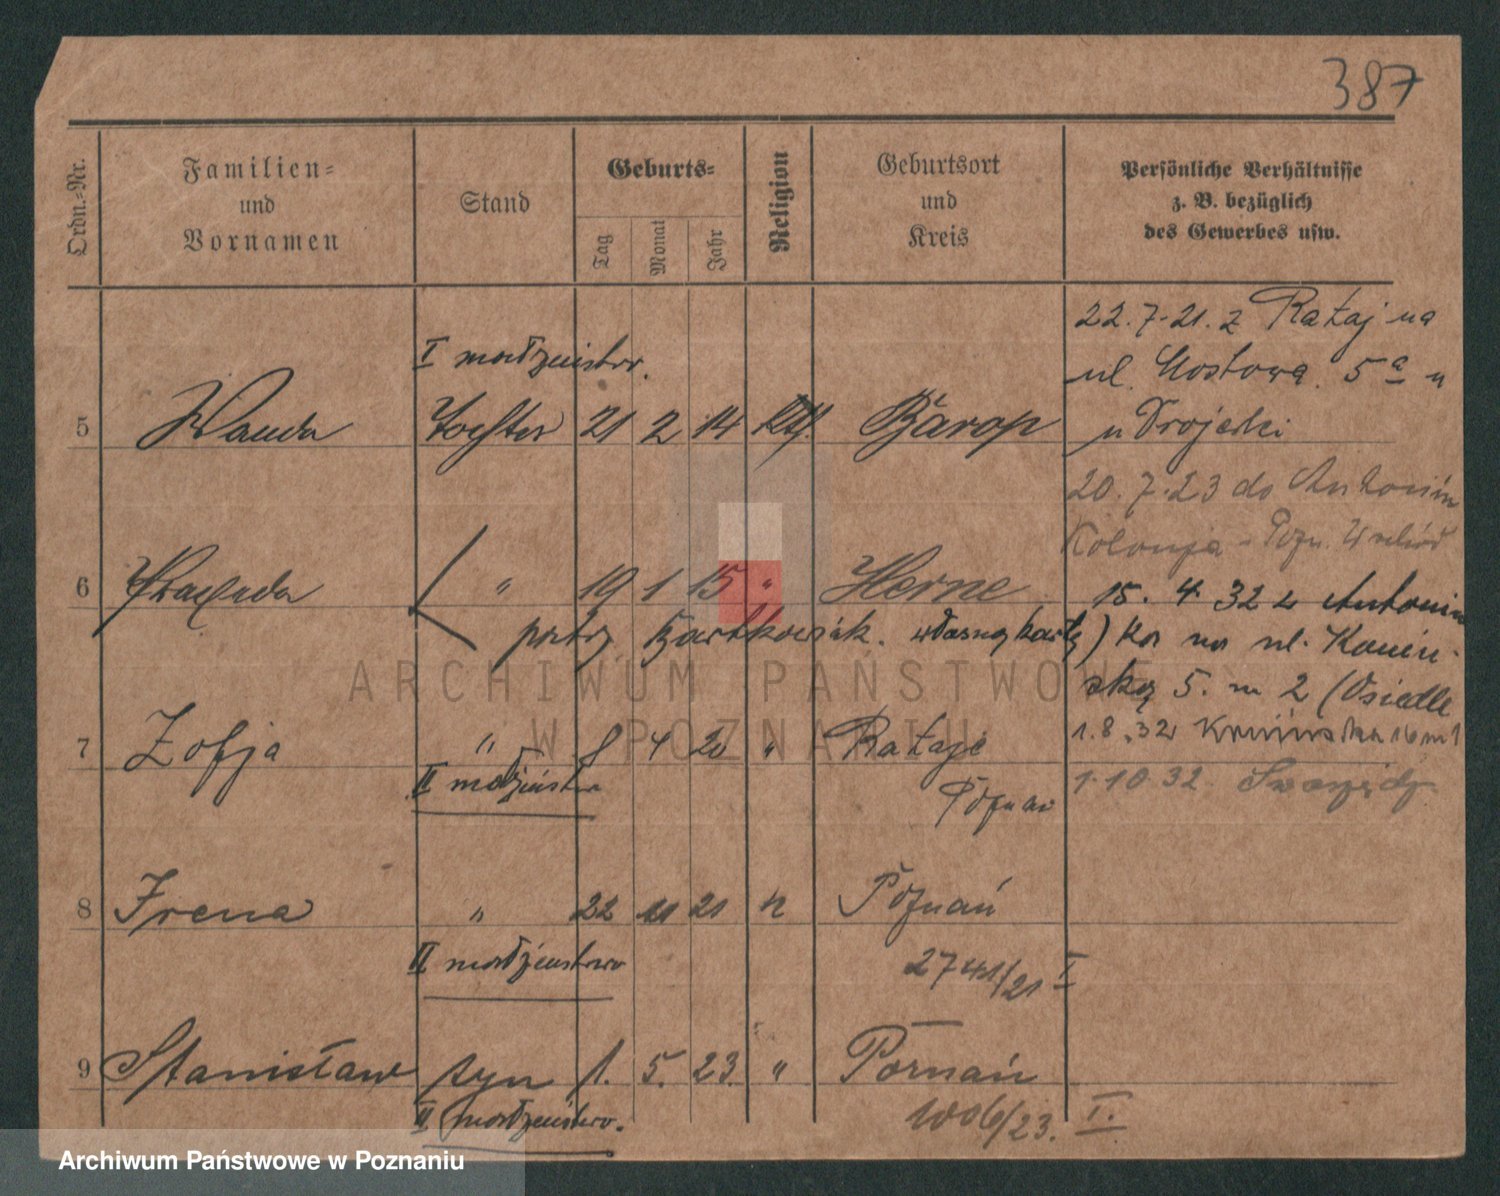 387
Ordn.-Nr.
Familien-
und
Vornamen
Stand
Geburts-
Tag
Monat
Jahr
Religion
Geburtsort
und
Kreis
Persönliche Verhältnisse
z. B. bezüglich
des Gewerbes usw.
22.7.21. z Rataj na
ul. Mostowa 5a u
20.7.23 do Antonin
Kolonja - Pozn. Wschód
15. 4. 32 z Antonin
na ul. Kamień-
ską 5. m 2 (Osiedle
1.8.32
1.10.32.
I małżeństw.
5 Wanda Tochter 21 2 14 kth. Barop
6 " 19 1 15 " Herne
Bartkowiak. własną kartę)
7 Zofja " 8 4 20 " Rataje
II małżeństw Poznań
8 Irena " 22 11 21 " Poznań
II małżeństwo 2741/21 I
9 Stanisław syn 1. 5. 23. " Poznań
II małżeństwo. 1006/23. I.
ARCHIWUM PAŃSTWOWE
W POZNANIU
Archiwum Państwowe w Poznaniu